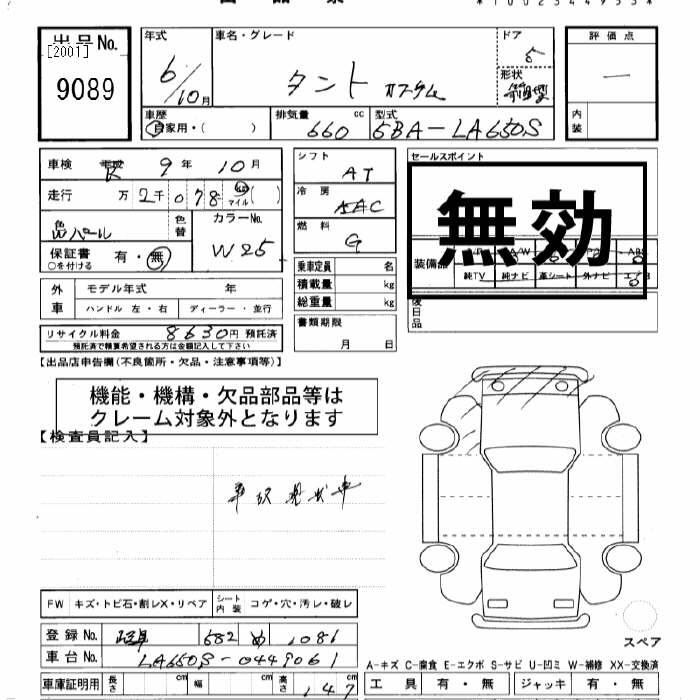 出品No.
[2001]
9089
年式
6/10月
車名・グレード
タント カスタム
ドア
5
形状
箱型
評価点
一
内装
車歴
自家用・( )
排気量
660 cc
型式
6BA-LA650S
車検 R 9年 10月
走行 万 2千 078 km マイル( )
色
パール
色替
カラーNo.
W25
保証書 有・無
○を付ける
シフト
AT
冷房
AAC
燃料
G
乗車定員 名
積載量 kg
総重量 kg
書類期限
月 日
セールスポイント
無効
装備品
A/W
ABS
純TV 純ナビ 革シート 外ナビ
後日品
外車
モデル年式 年
ハンドル 左・右 ディーラー・並行
リサイクル料金 8630円 預託済
預託済で精算希望される方は金額記入して下さい
【出品店申告欄(不良箇所・欠品・注意事項等)】
機能・機構・欠品部品等は
クレーム対象外となります
【検査員記入】
現状車
FW キズ・トビ石・割レX・リペア シート内装 コゲ・穴・汚レ・破レ
登録No. 582 め 1081
車台No. LA650S-0449061
車庫証明用 長さ cm 幅 cm 高さ 147 cm
スペア
A-キズ C-腐食 E-エクボ S-サビ U-凹ミ W-補修 XX-交換済
工具 有・無 ジャッキ 有・無